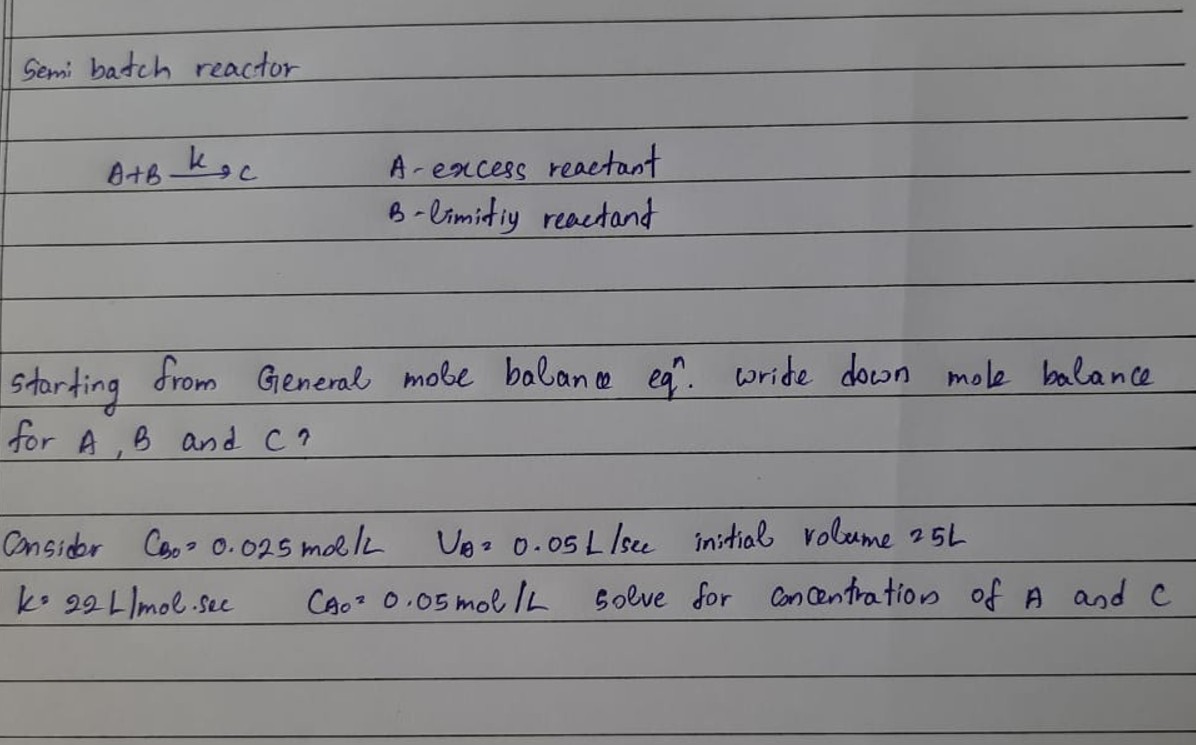 Semi batch reactor
A+B k→ C A - excess reactant
B - limitiy reactand
starting from General mole balance eqⁿ. wride down mole balance
for A, B and C?
Consider CB0 = 0.025 mol/L UB = 0.05 L/sec initial volume = 5L
k = 22 L/mol.sec CA0 = 0.05 mol/L solve for concentration of A and C